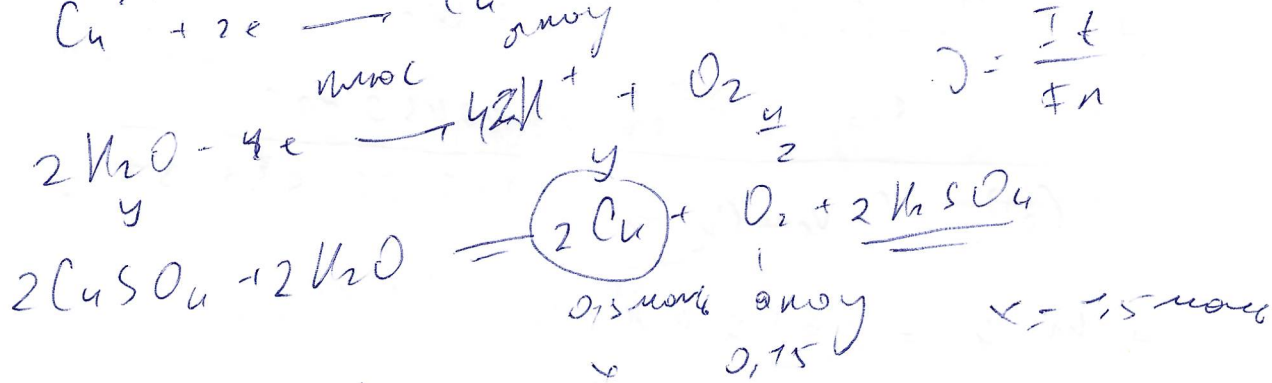 Cu + 2e → Cu
анод
плюс
ν = It / Fn
2H₂O - 4e → 4H⁺ + O₂ y/2
y y
2CuSO₄ + 2H₂O = 2Cu + O₂ + 2H₂SO₄
0,3 моль анод x = 1,5 моль
x 0,15